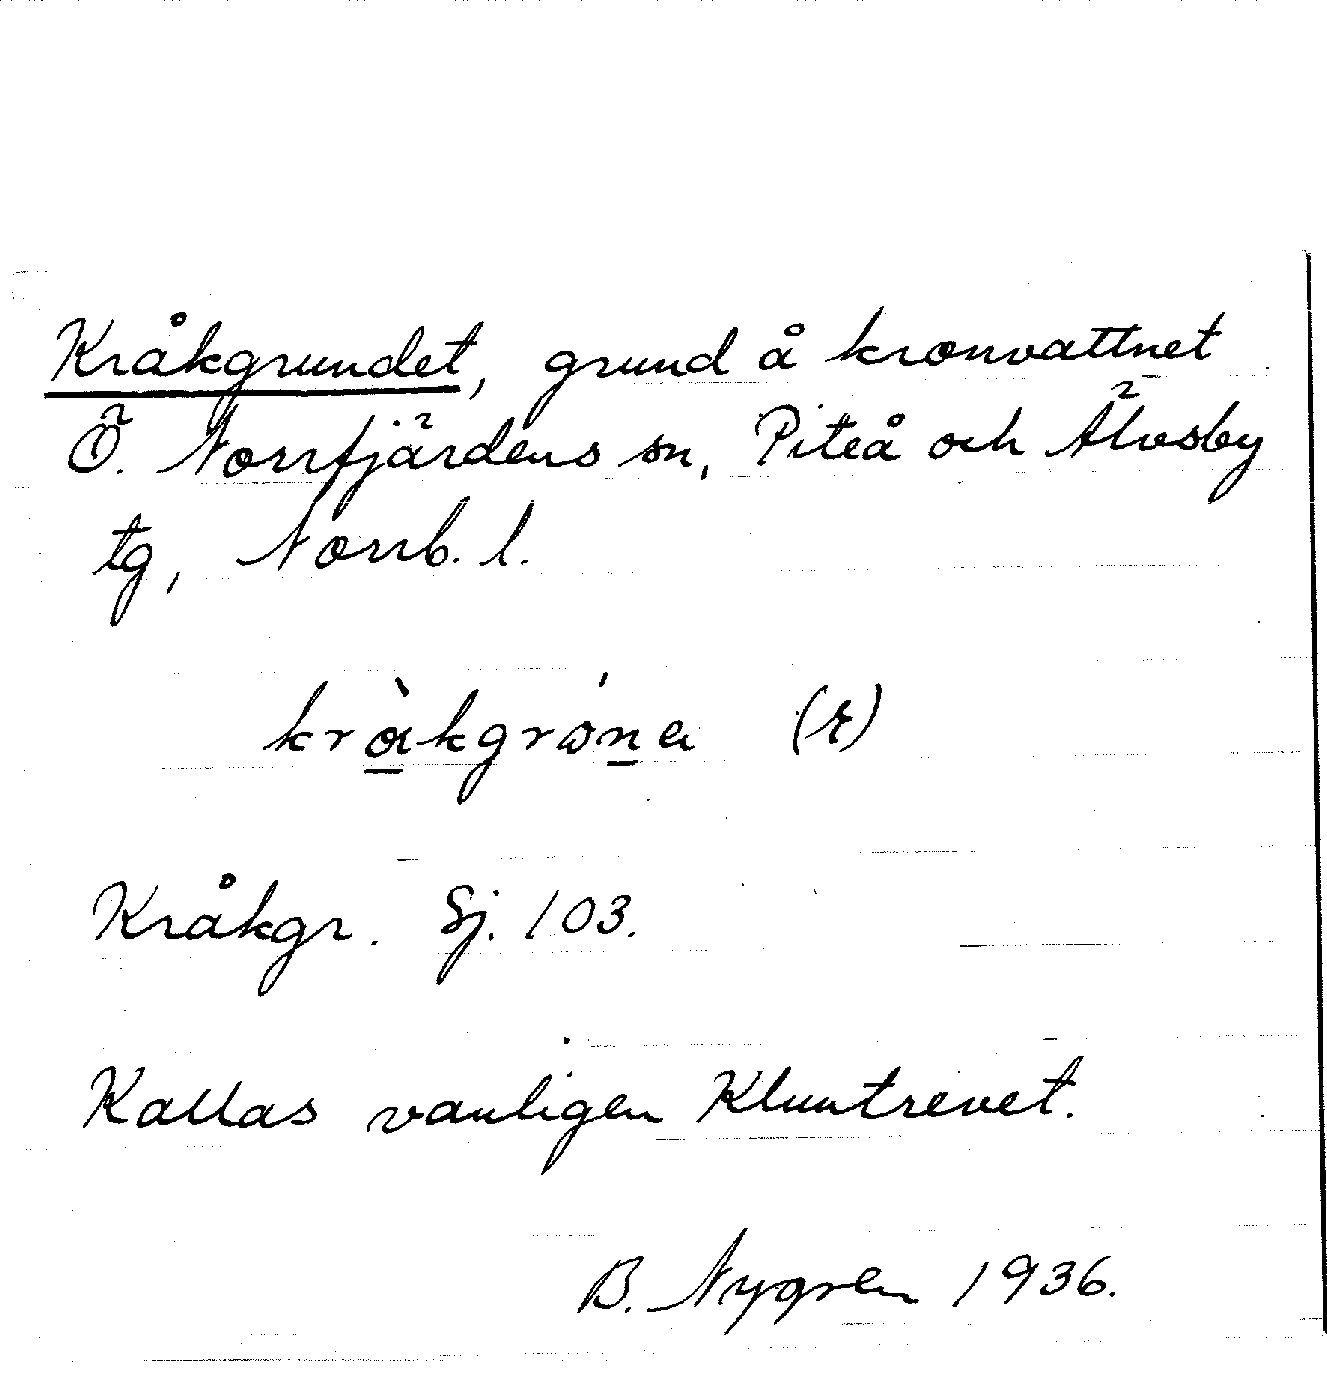 Kråkgrundet, grund å kronvattnet
Ö. Norrfjärdens sn, Piteå och Älvsby
tg, Norrb. l.
kràkgrøna (ɛ)
Kråkgr. Sj. 103.
Kallas vanligen Kluntrevet.
B. Nygren 1936.